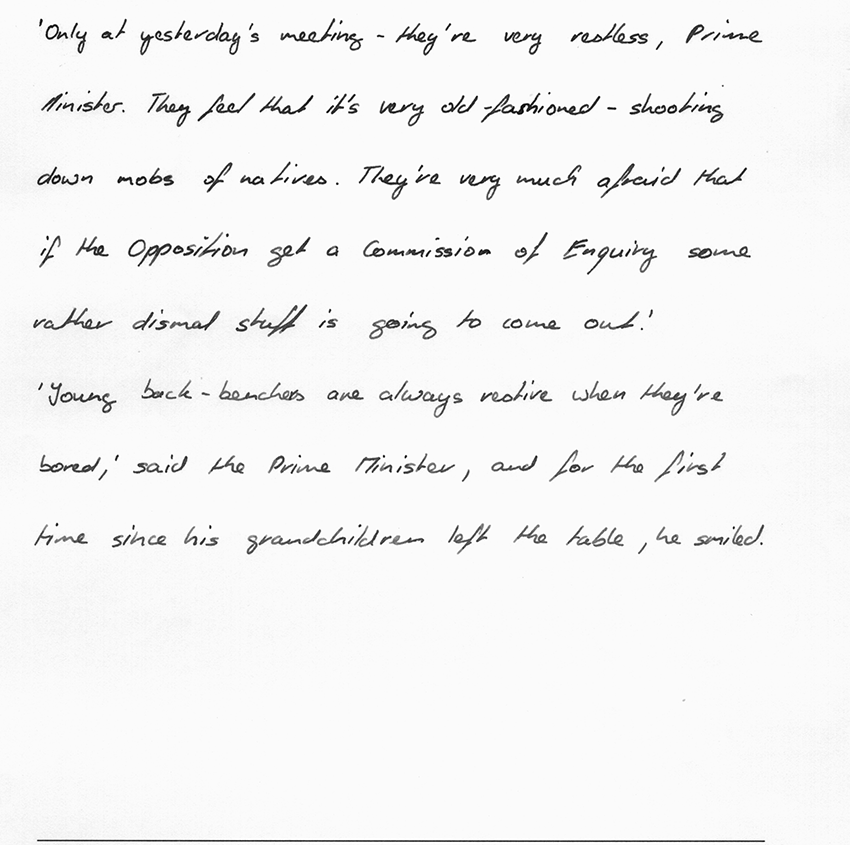 'Only at yesterday's meeting - they're very restless, Prime
Minister. They feel that it's very old-fashioned - shooting
down mobs of natives. They're very much afraid that
if the Opposition get a Commission of Enquiry some
rather dismal stuff is going to come out.'
'Young back-benchers are always restive when they're
bored,' said the Prime Minister, and for the first
time since his grandchildren left the table, he smiled.